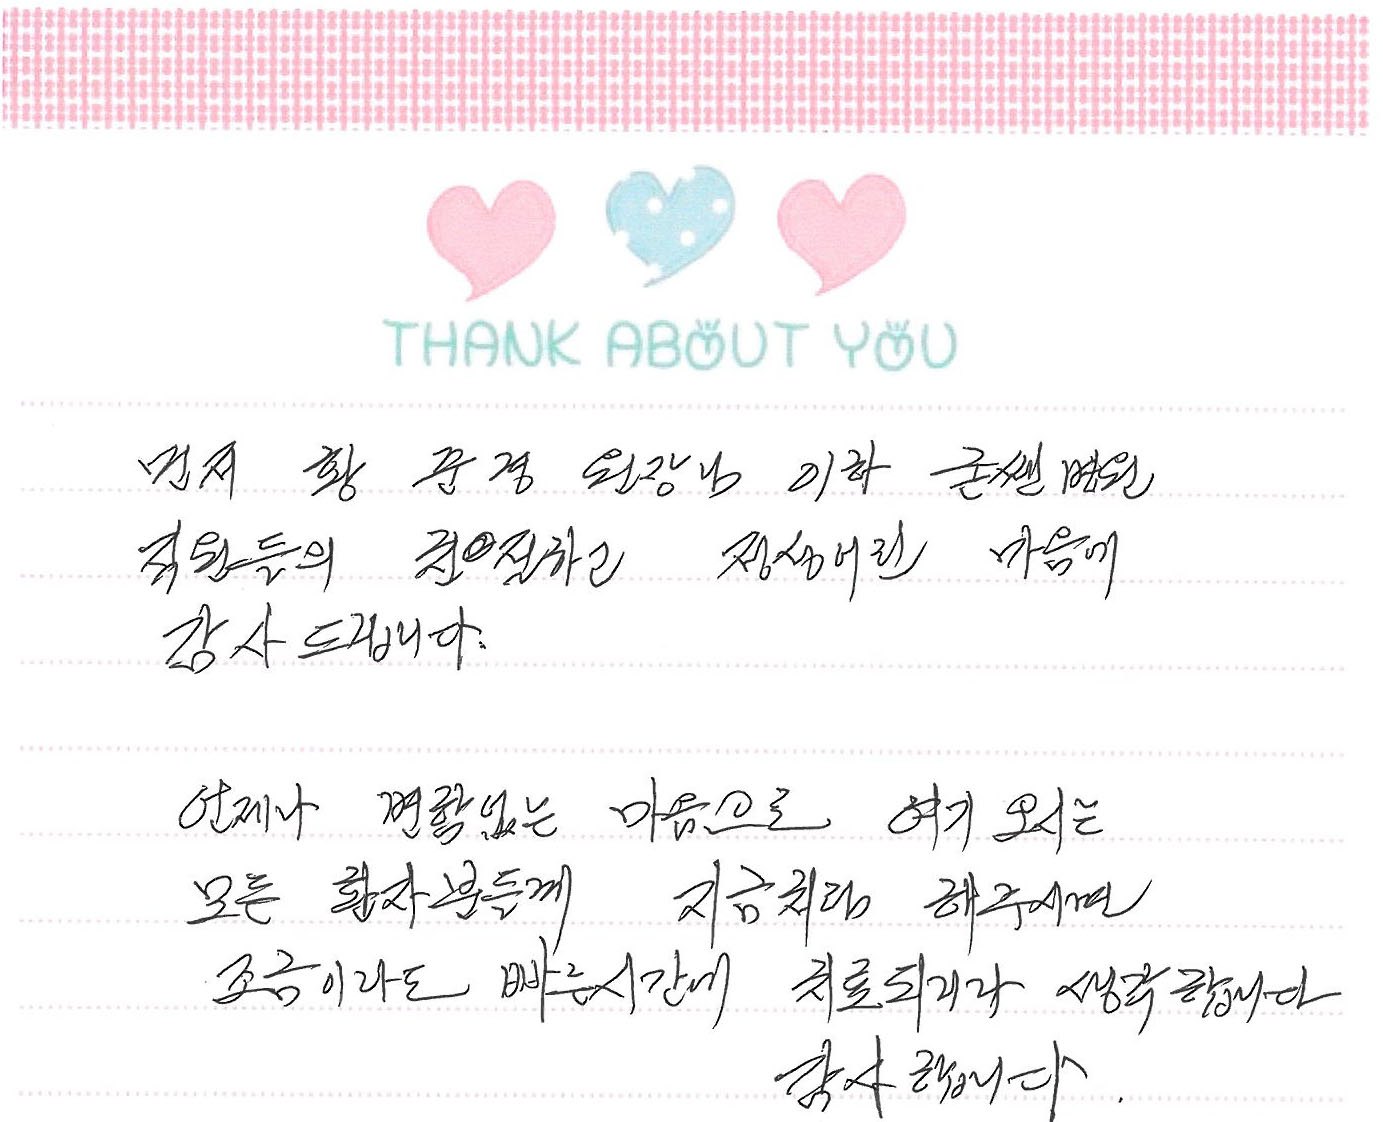 THANK ABOUT YOU
먼저 황 문경 원장님 이하 굳쎈병원
직원들의 친절하고 정성어린 마음에
감사드립니다.
언제나 변함없는 마음으로 여기 오시는
모든 환자분들께 지금처럼 해주시면
조금이라도 빠른시간에 치료되리라 생각합니다
감사합니다.